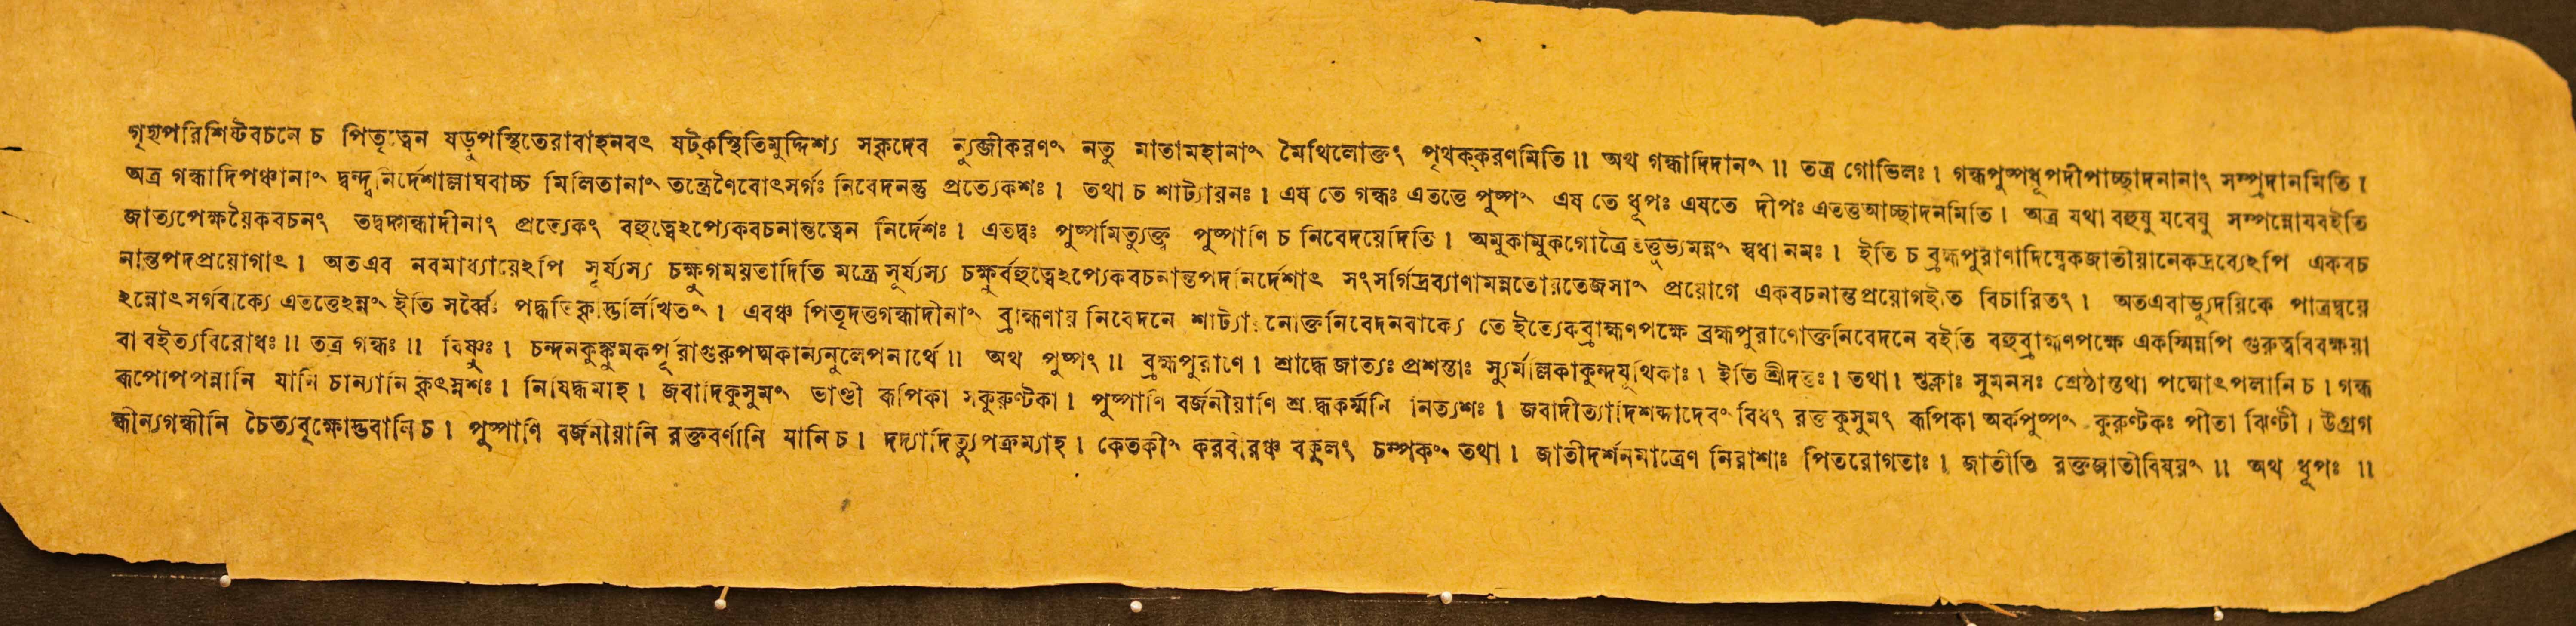 গৃহ্যপরিশিষ্টবচনে চ পিতৃত্বেন ষড়ুপস্থিতেরাবাহনবৎ ষট্কস্থিতিমুদ্দিশ্য সকৃদেব ন্যুব্জীকরণং নতু মাতামহানাং মৈথিলোক্তং পৃথক্করণমিতি ॥ অথ গন্ধাদিদানং ॥ তত্র গোভিলঃ । গন্ধপুষ্পধূপদীপাচ্ছাদনানাং সম্প্রদানমিতি ।
অত্র গন্ধাদিপঞ্চানাং দ্বন্দ্বনির্দেশাল্লাঘবাচ্চ মিলিতানাং তন্ত্রেণৈবোৎসর্গঃ নিবেদনন্তু প্রত্যেকশঃ । তথা চ শাট্যায়নঃ । এষ তে গন্ধঃ এতত্তে পুষ্পং এষ তে ধূপঃ এষতে দীপঃ এতত্তআচ্ছাদনমিতি । অত্র যথা বহুষু যবেষু সম্পন্নোযবইতি
জাত্যপেক্ষয়ৈকবচনং তদ্বদ্গন্ধাদীনাং প্রত্যেকং বহুত্বেঽপ্যেকবচনান্তত্বেন নির্দেশঃ । এতদ্বঃ পুষ্পমিত্যুক্ত্বা পুষ্পাণি চ নিবেদয়েদিতি । অমুকামুকগোত্রৈতত্তুভ্যমন্নং স্বধা নমঃ । ইতি চ ব্রহ্মপুরাণাদিষ্বেকজাতীয়ানেকদ্রব্যেঽপি একবচ
নান্তপদপ্রয়োগাৎ । অতএব নবমাধ্যায়েঽপি সূর্য্যস্য চক্ষুগময়তাদিতি মন্ত্রে সূর্য্যস্য চক্ষুর্বহুত্বেঽপ্যেকবচনান্তপদনির্দেশাৎ সংসর্গিদ্রব্যাণামন্নতোয়তেজসাং প্রয়োগে একবচনান্তপ্রয়োগইতি বিচারিতং । অতএবাভ্যুদয়িকে পাত্রদ্বয়ে
ঽন্নোৎসর্গবাক্যে এতত্তেঽন্নং ইতি সর্ব্বৈঃ পদ্ধতিকৃদ্ভির্লিখিতং । এবঞ্চ পিতৃদত্তগন্ধাদীনাং ব্রাহ্মণায় নিবেদনে শাট্যায়নোক্তনিবেদনবাক্যে তে ইত্যেকব্রাহ্মণপক্ষে ব্রহ্মপুরাণোক্তনিবেদনে বইতি বহুব্রাহ্মণপক্ষে একস্মিন্নপি গুরুত্ববিবক্ষয়া
বা বইত্যবিরোধঃ ॥ তত্র গন্ধঃ ॥ বিষ্ণুঃ । চন্দনকুঙ্কুমকর্পূরাগুরুপদ্মকান্যনুলেপনার্থে ॥ অথ পুষ্পং ॥ ব্রহ্মপুরাণে । শ্রাদ্ধে জাত্যঃ প্রশস্তাঃ স্যুর্মল্লিকাকুন্দযূথিকাঃ । ইতি শ্রীদত্তঃ । তথা । শুক্লাঃ সুমনসঃ শ্রেষ্ঠাস্তথা পদ্মোৎপলানি চ । গন্ধ
রূপোপপন্নানি যানি চান্যানি কৃৎস্নশঃ । নিষিদ্ধমাহ । জবাদিকুসুমং ভাণ্ডী রূপিকা সকুরুণ্টকা । পুষ্পাণি বর্জনীয়াণি শ্রাদ্ধকর্ম্মনি নিত্যশঃ । জবাদীত্যাদিশব্দাদেবং বিধং রক্তকুসুমং রূপিকা অর্কপুষ্পং কুরুণ্টকঃ পীতা ঝিণ্টী । উগ্রগ
ন্ধীন্যগন্ধীনি চৈত্যবৃক্ষোদ্ভবানি চ । পুষ্পাণি বর্জনীয়ানি রক্তবর্ণানি যানি চ । দদ্যাদিত্যুপক্রম্যাহ । কেতকীং করবীরঞ্চ বকুলং চম্পকং তথা । জাতীদর্শনমাত্রেণ নিরাশাঃ পিতরোগতাঃ । জাতীতি রক্তজাতীবিষয়ং ॥ অথ ধূপঃ ॥